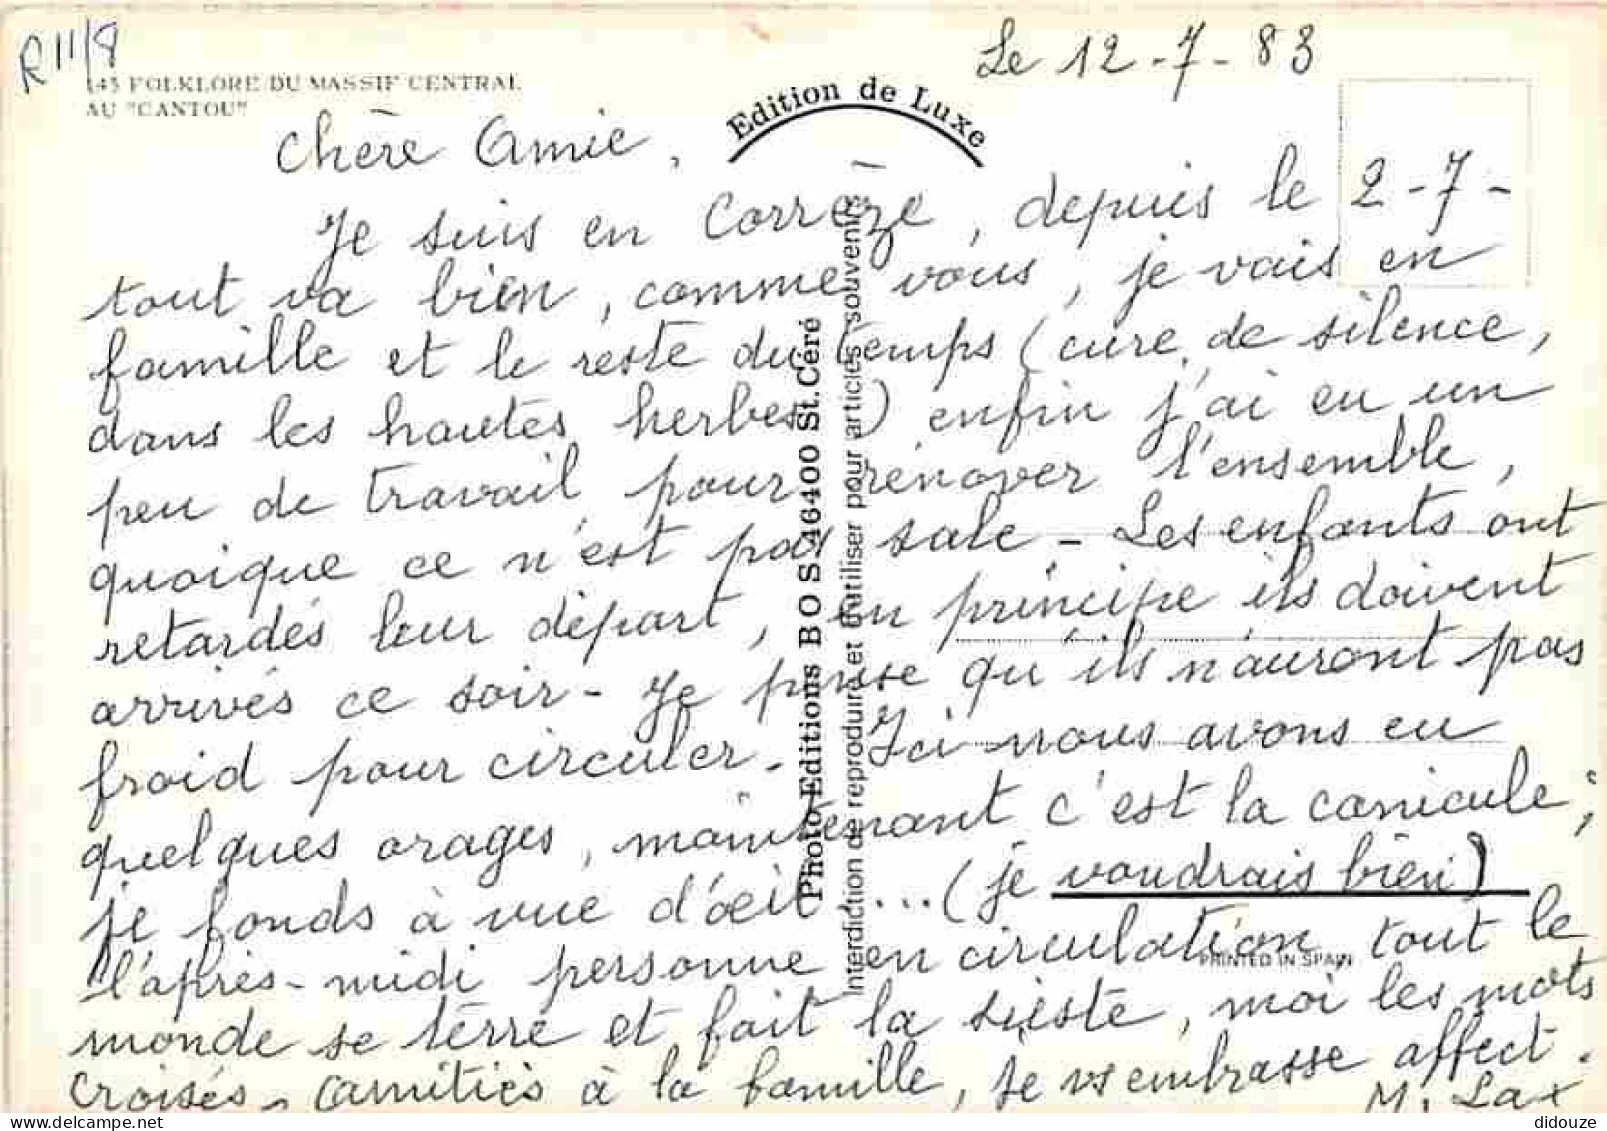 R 11/8
Le 12-7-83
145 FOLKLORE DU MASSIF CENTRAL
AU "CANTOU"
Edition de Luxe
Chère Amie,
Je suis en Corrèze, depuis le 2-7-
tout va bien, comme vous, je vais en
famille et le reste du temps (cure de silence,
dans les hautes herbes) enfin j'ai eu un
peu de travail pour rénover l'ensemble,
quoique ce n'est pas sale - Les enfants ont
retardés leur départ, en principe ils doivent
arrivés ce soir - Je pense qu'ils n'auront pas
froid pour circuler - Ici nous avons eu
quelques orages, maintenant c'est la canicule,
je fonds à vue d'œil ... (je voudrais bien)
l'après-midi personne en circulation, tout le
monde se terre et fait la sieste, moi les mots
croisés - amitiés à la famille, je vs embrasse affect.
M. Lax
Photo-Editions BOS 46400 St. Céré
Interdiction de reproduire et d'utiliser pour articles souvenirs
PRINTED IN SPAIN
didouze